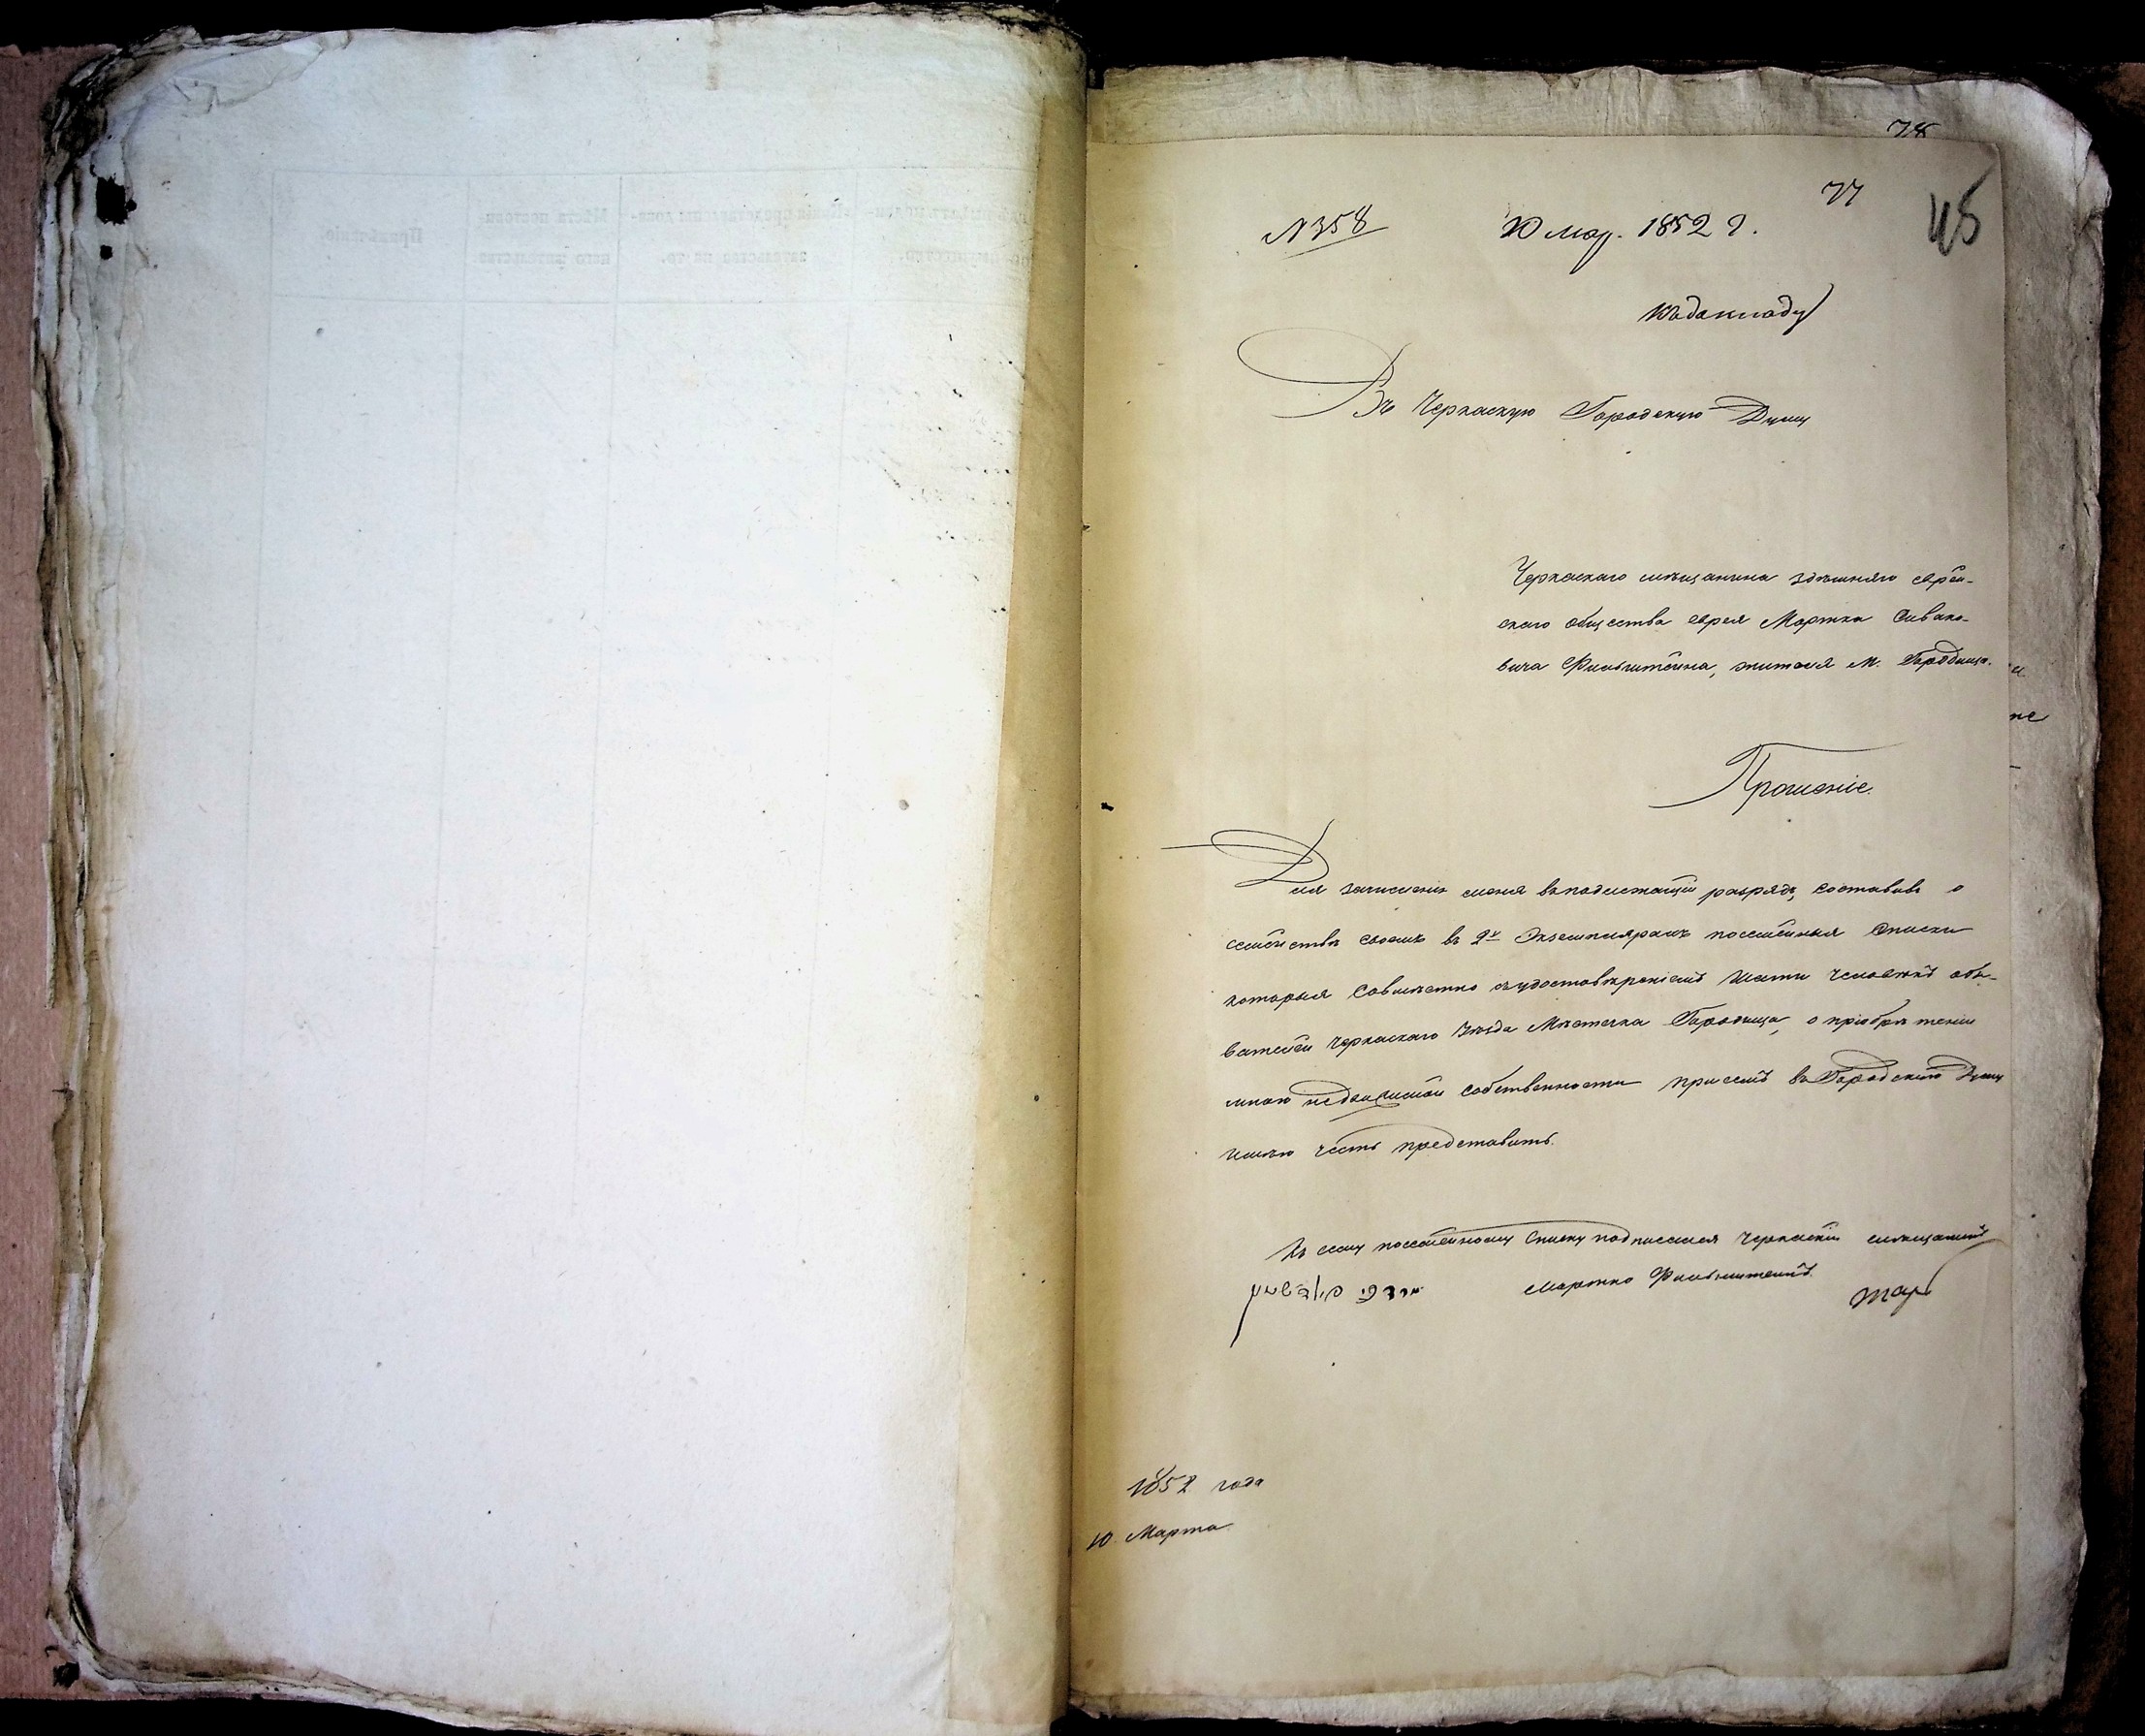 78
77
45
№ 358 10 мар. 1852 г.
къ докладу
Въ Черкаскую Городскую Думу
Черкаскаго мѣщанина здѣшняго еврей-
скаго общества еврея Мортка
вича Фильштейна, жителя М. Городища.
Прошеніе.
Для зачисленія меня въ подлежащій разрядъ, составивъ о
семействѣ своемъ въ 2х Экземплярахъ посемейныя Списки
которыя совмѣстно съ удостовѣреніемъ шести человѣкъ обы-
вателей Черкаскаго Уѣзда Мѣстечка Городища, о пріобрѣтеніи
мною недвижимой собственности при семъ въ Городскую Думу
имѣю честь представить.
Къ сему посемейному Списку подписался Черкаскій мѣщанинъ
Мортко Фильштейнъ.
1852 года
10 Марта